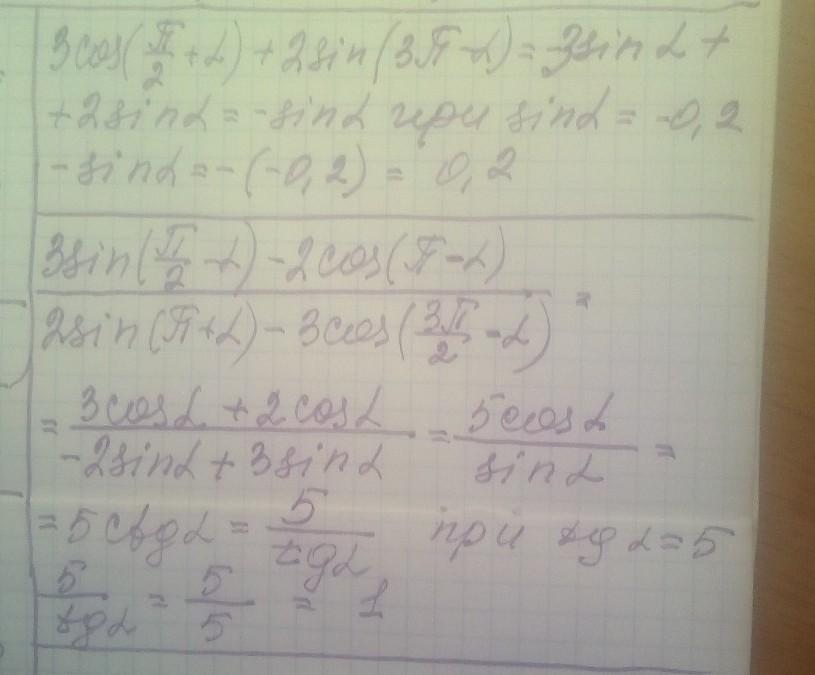 3cos(π/2 + α) + 2sin(3π - α) = -3sin α +
+ 2sin α = -sin α при sin α = -0,2
-sin α = -(-0,2) = 0,2
(3sin(π/2 - α) - 2cos(π - α)) / (2sin(π + α) - 3cos(3π/2 - α)) =
= (3cos α + 2cos α) / (-2sin α + 3sin α) = 5cos α / sin α =
= 5ctg α = 5 / tg α при tg α = 5
5 / tg α = 5/5 = 1